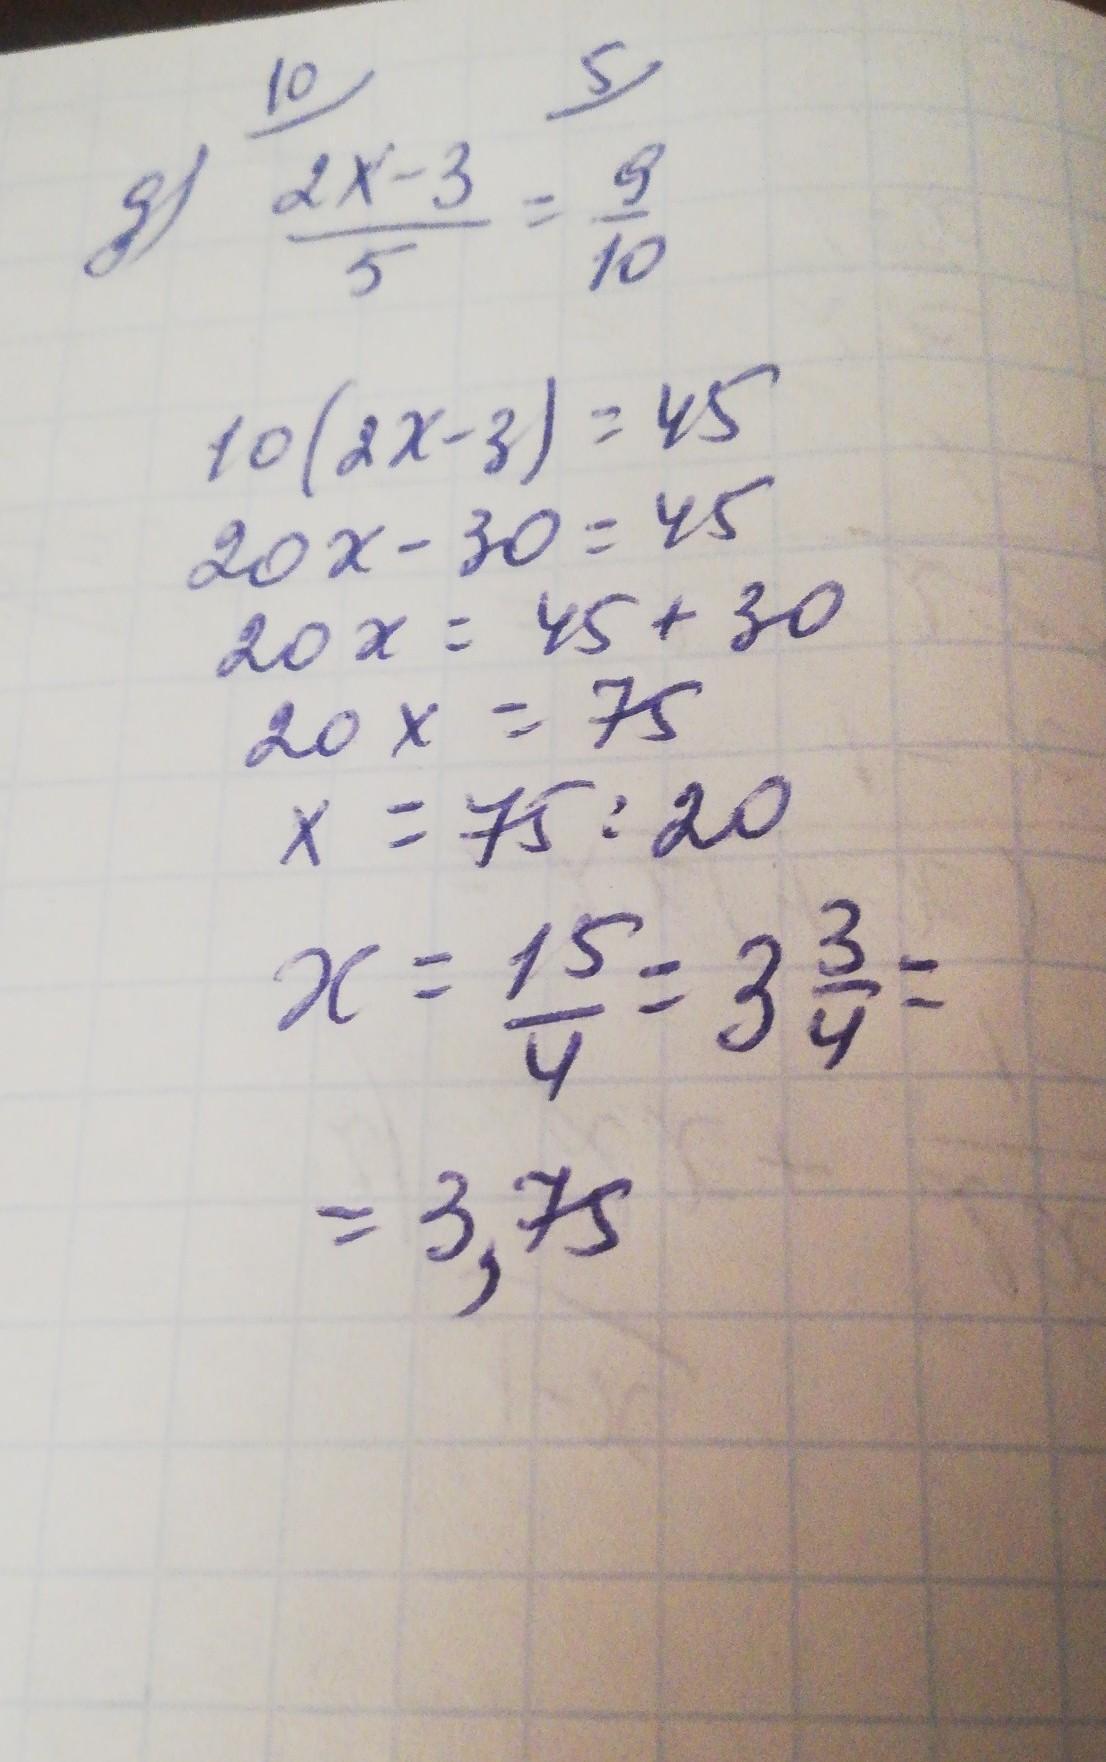 10/ 5/
д) (2x-3)/5 = 9/10
10(2x-3)=45
20x-30=45
20x=45+30
20x=75
x=75:20
x=15/4=3 3/4=
=3,75